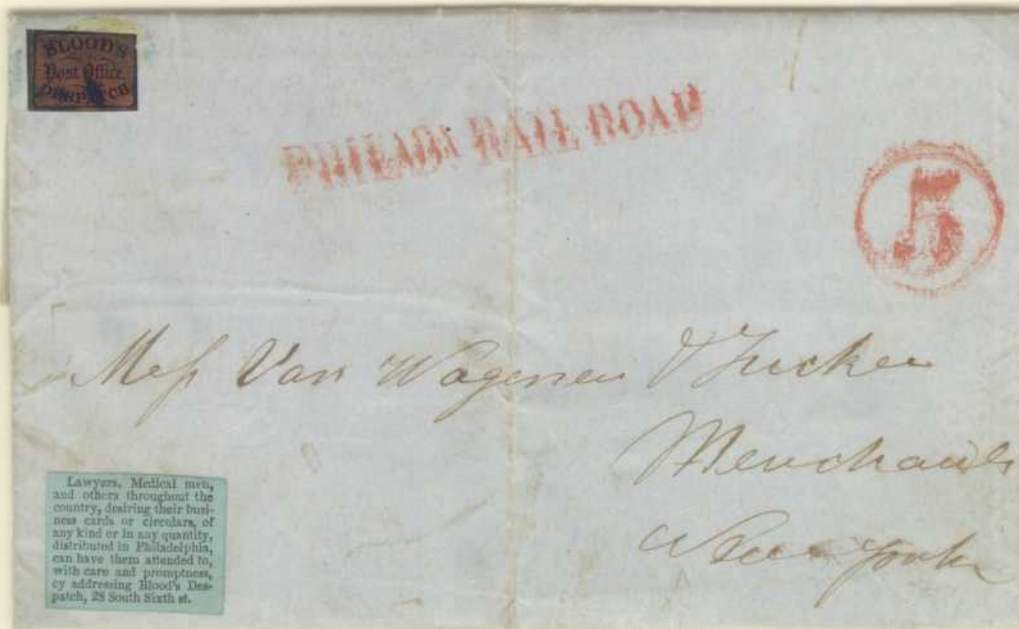 BLOOD'S
Post Office
DESPATCH
PHILADA RAIL ROAD
5
Mess Van Wagenen & Tucker
Merchants
New York
Lawyers, Medical men,
and others throughout the
country, desiring their busi-
ness cards or circulars, of
any kind or in any quantity,
distributed in Philadelphia,
can have them attended to,
with care and promptness,
cy addressing Blood's Des-
patch, 28 South Sixth st.